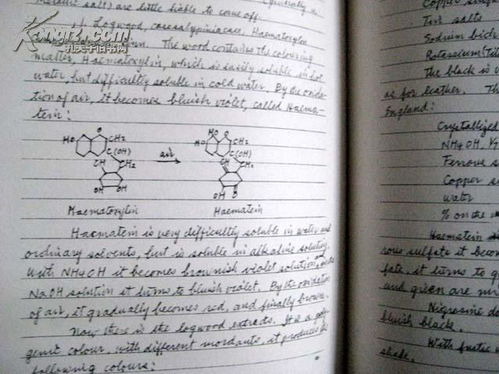 metallic salts) are little liable to come off.
Kongfz.com
孔夫子旧书网
Logwood, caesalpiniaceae, Haematoxylon
The wood contains the colouring
matter, Haematoxylin, which is easily soluble in hot
water, but difficultly soluble in cold water. By the oxida-
tion of air, it becomes bluish violet, called Haema-
tein:
HO O CH2 C(OH) CH CH2 OH OH
air
HO O CH2 C(OH) CH2 OH O
Haematoxylin
Haematein
Haematein is very difficultly soluble in water and
ordinary solvents, but is soluble in alkaline solution.
With NH4OH it becomes brownish violet solution,
NaOH solution it turns to bluish violet. By the oxidation
of air, it gradually becomes red, and finally brown.
Now this is the logwood extracts. It is a poly-
genic colour, with different mordants, it produces the
following colours:
Copper
Tin salts
Sodium bich
Potassium
The black is
as for leather. Th
England:
Crystallized
NH4OH
Ferrous
Copper
water
% on the
Haematein
rous sulfate it becom
fate, it turns to g
and green are mi
Nigrosine
bluish black.
With fustic
shade.